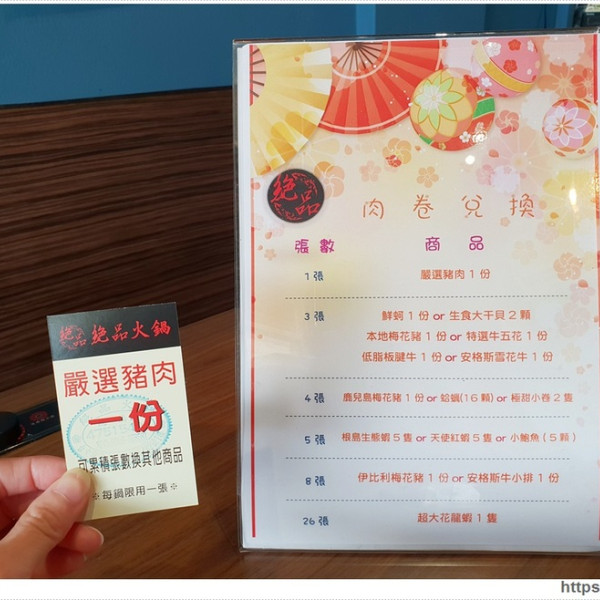 絶品
肉卷兌換
張數 商品
1張 嚴選豬肉1份
3張 鮮蚵1份or生食大干貝2顆
本地梅花豬1份or特選牛五花1份
低脂板腱牛1份or安格斯雪花牛1份
4張 鹿兒島梅花豬1份or蛤蠣(16顆)or極甜小卷2隻
5張 根島生態蝦5隻or天使紅蝦5隻or小鮑魚(5顆)
8張 伊比利梅花豬1份or安格斯牛小排1份
26張 超大花龍蝦1隻
絶品 絶品火鍋
嚴選豬肉
一份
可累積張數換其他商品
※每鍋限用一張※
https